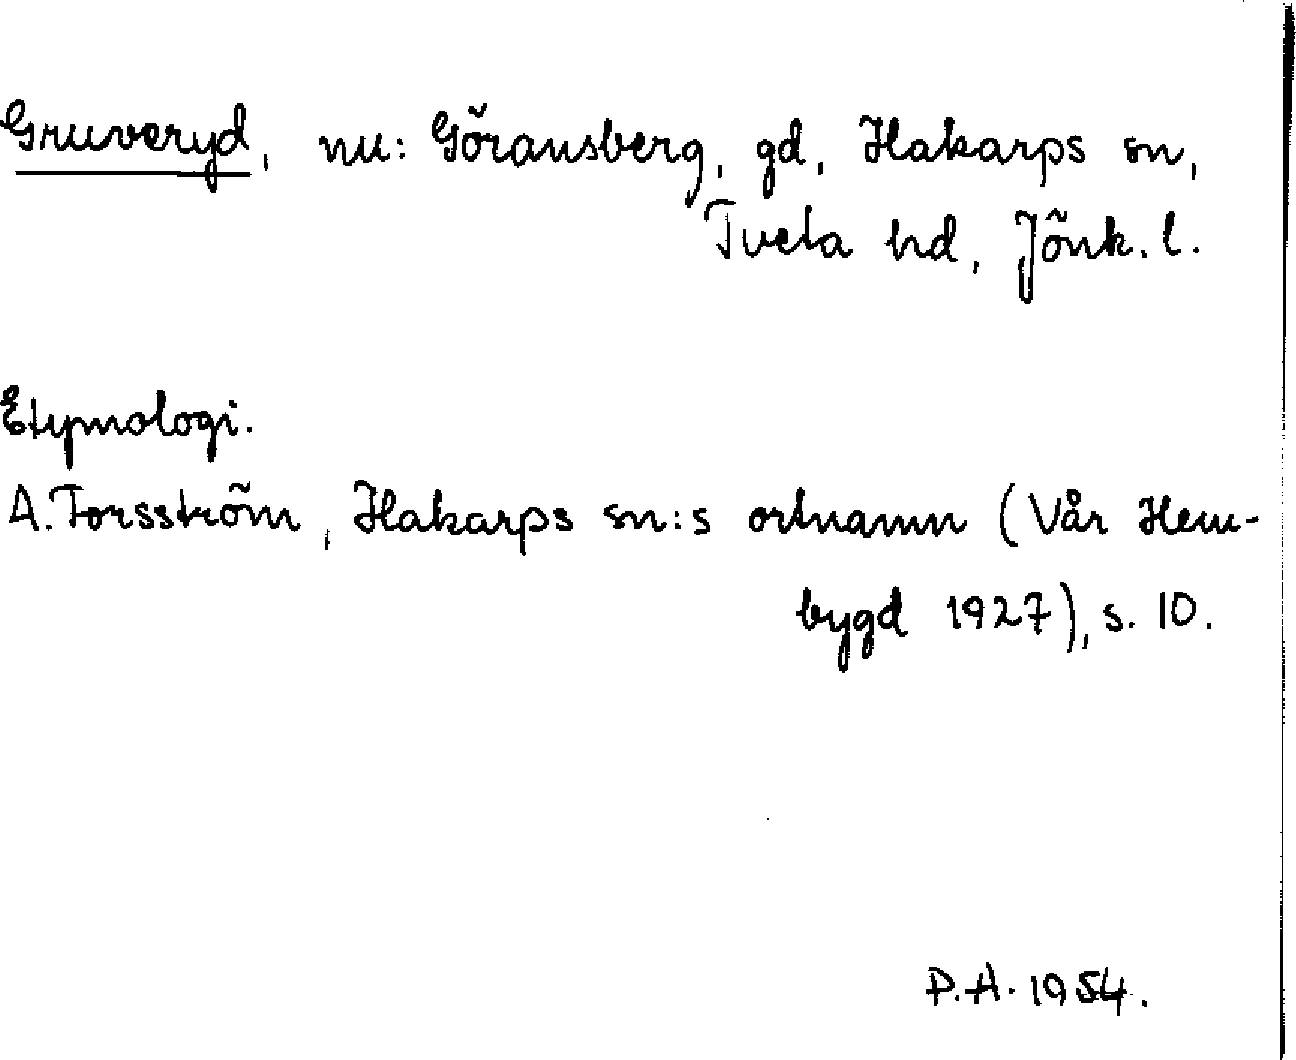 Gruveryd, nu: Göransberg, gd, Hakarps sn,
Tveta hd, Jönk. l.
Etymologi.
A. Forsström, Hakarps sn:s ortnamn (Vår Hem-
bygd 1927), s. 10.
P.A. 1954.